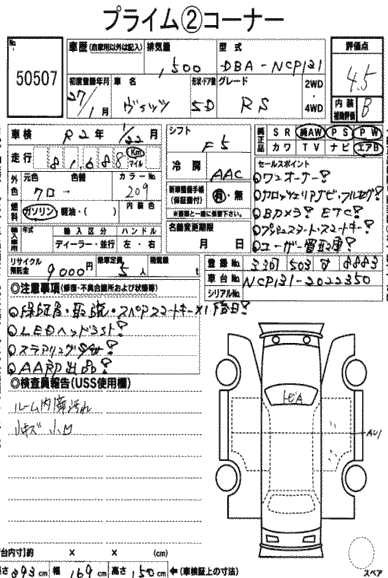 プライム②コーナー
No.
50507
車歴(自家用以外は記入) 排気量 型式
1,500 DBA-NCP131
初度登録年月 車名 形状・ドア数 グレード
27/1月 ヴィッツ 5D RS 2WD・4WD
評価点
4.5
内装補助評価 B
車検 R2年1/22月
シフト F5
走行 81,688 Km マイル
冷房 AAC
純正品 SR 純AW PS PW
カワ TV ナビ エアB
外色 元色 色替 カラーNo.
クロー 209
燃料 ガソリン・軽油・( ) 内装色
新車整備手帳(保証書付) 有・無
※最後に一緒に保管して下さい
輸入車 輸入区分 ハンドル
ディーラー・並行 左・右
名義変更期限
月 日
セールスポイント
①ワンオーナー!
②カロッツェリアナビ・フルセグ!
③Bカメラ! ETC!
④プッシュスタート・スマートキー!
⑤ユーザー買取車!
リサイクル預託金 9000円 乗車定員 5人 積載量 t
登録No. 503 8883
車台No. NCP131-2022350
シリアルNo.
◎注意事項(修復・不具合箇所および状態等)
①保証書・取説・スペアスマートキー×1
②LEDヘッドライト!
③ステアリングSW!
④AAプロ出品!
◎検査員報告(USS使用欄)
ルーム内汚れ
小キズ 小凹
AU1
台内寸)約 × × (cm)
長さ 393cm 幅 169cm 高さ 150cm ←(車検証上の寸法)
スペア